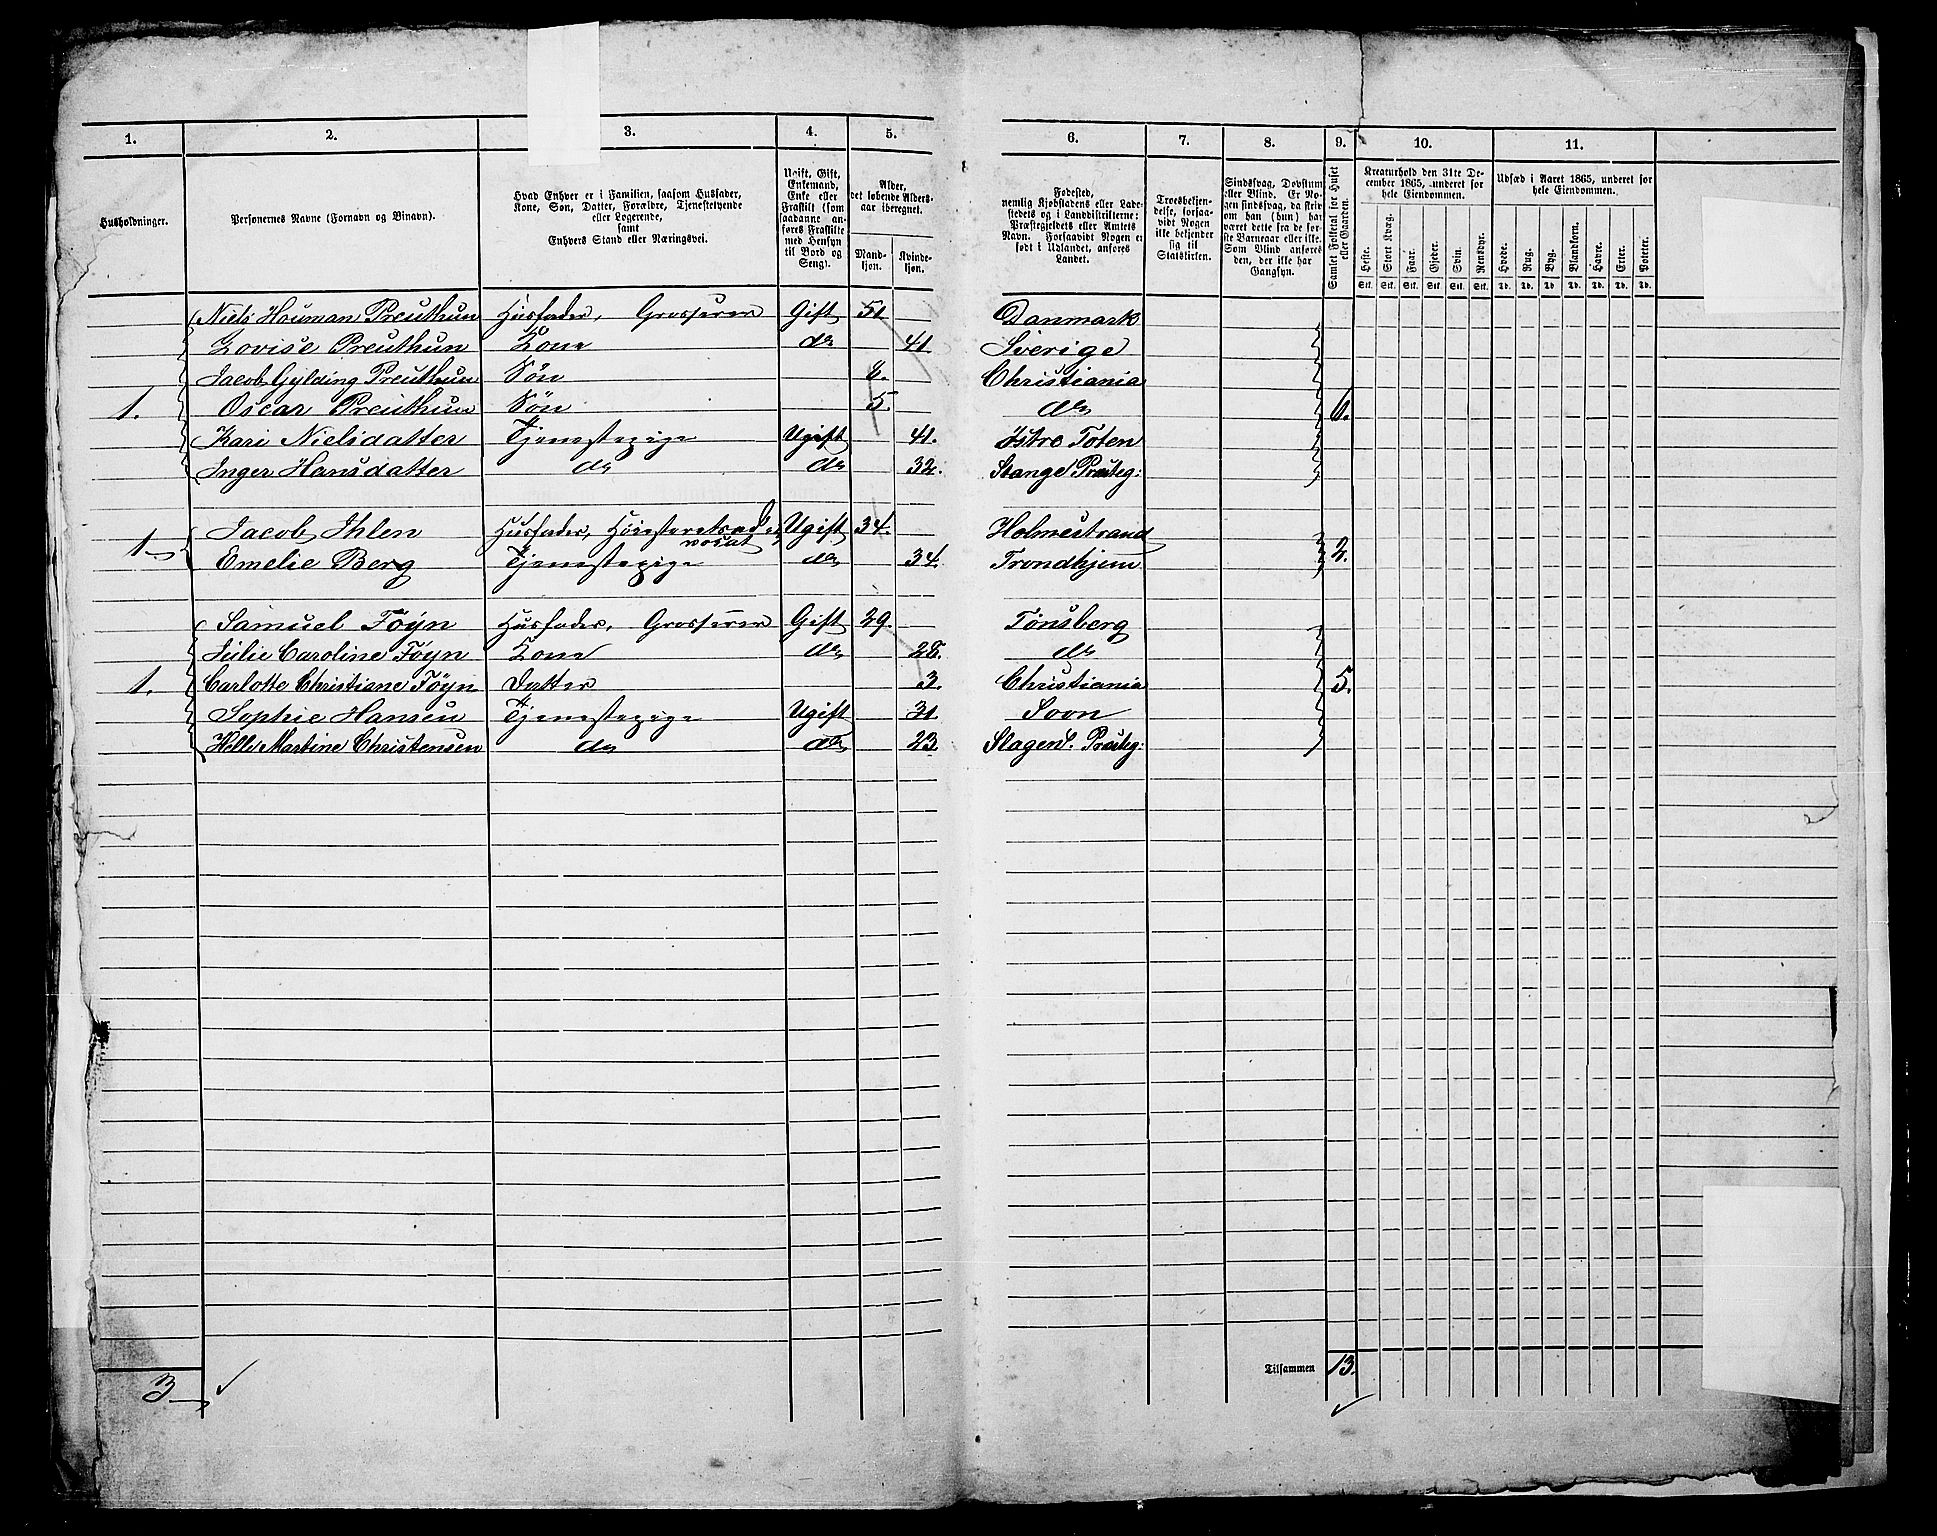 1. 2. 3. 4. 5. 6. 7. 8. 9. 10. 11.
Husholdninger.
Personernes Navne (Fornavn og Binavn).
Hvad Enhver er i Familien, saasom Husfader,
Kone, Søn, Datter, Forældre, Tjenestetyende
eller Logerende,
samt
Enhvers Stand eller Næringsvei.
Ugift, Gift,
Enkemand,
Enke eller
Fraskilt (som
saadanne an-
føres Fraskilte
med Hensyn
til Bord og
Seng).
Alder,
det løbende Alders-
aar iberegnet.
Mand-
kjøn.
Kvinde-
kjøn.
Fødested,
nemlig Kjøbstadens eller Lade-
stedets og i Landdistrikterne:
Præstegjeldets eller Amtets
Navn. Forsaavidt Nogen er
født i Udlandet, anføres
Landet.
Troesbekjen-
delse, forsaa-
vidt Nogen
ikke bekjender
sig til
Statskirken.
Sindssvag, Døvstum
eller Blind. Er No-
gen sindssvag, da skriv
om han (hun) har
været dette fra de før-
ste Barneaar eller ikke.
Som Blind anføres
den, der ikke har
Gangsyn.
Samlet Folketal for Huset
eller Gaarden.
Kreaturhold den 31te De-
cember 1865, underet for
hele Eiendommen.
Heste. Stort Kvæg. Faar. Gjeder. Svin. Rensdyr.
Stk. Stk. Stk. Stk. Stk. Stk.
Udsæd i Aaret 1865, underet for
hele Eiendommen.
Hvede. Rug. Byg. Blandkorn. Havre. Erter. Poteter.
Td. Td. Td. Td. Td. Td. Td.
Niels Houman Preuthun Husfader, Grosserer Gift 51 Danmark
Lovise Preuthun Kone do 41 Sverige
Jacob Gylding Preuthun Søn 8. Christiania
1. Oscar Preuthun Søn 5. do 6.
Kari Nielsdatter Tjenestepige Ugift 41. Østre Toten
Inger Hansdatter do do 32. Stange Præsteg:
Jacob Ihlen Husfader, Høiesteretsad- Ugift 34. Holmestrand
vocat
1. Emelie Berg Tjenestepige do 34. Trondhjem 2.
Samuel Føyn Husfader, Grosserer Gift 29. Tønsberg
Julie Caroline Føyn Kone do 28. do
1. Carlotte Christiane Føyn Datter 3. Christiania 5.
Sophie Hansen Tjenestepige Ugift 31. Soon
Helle Martine Christensen do do 23. Slagens Præsteg:
3 Tilsammen 13.